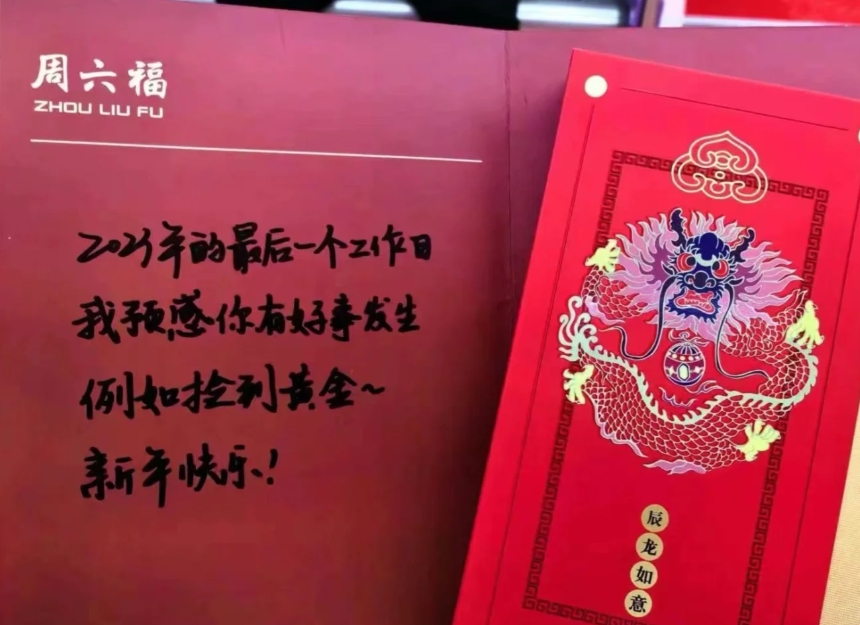 周六福
ZHOU LIU FU
2023年的最后一个工作日
我预感你有好事发生
例如捡到黄金~
新年快乐!
辰龙如意